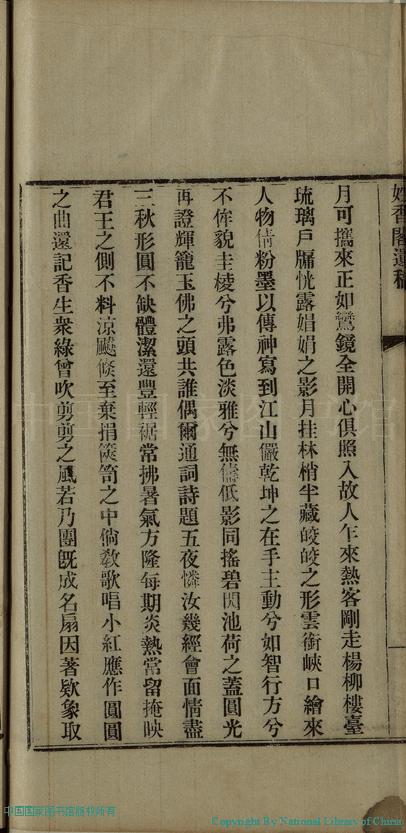 妙香閣遺稿
月可攜來正如鸞鏡全開心俱照入故人乍來熱客剛走楊柳樓臺
琉璃戶牖恍露娟娟之影月挂林梢半藏皎皎之形雲銜峽口繪來
人物倩粉墨以傳神寫到江山儼乾坤之在手主動兮如智行方兮
不侔貌圭棱兮弗露色淡雅兮無儔低影同搖碧閃池荷之蓋圓光
再證輝籠玉佛之頭共誰偶爾通詞詩題五夜憐汝幾經會面情盡
三秋形圓不缺體潔還豐輕裾常拂暑氣方隆每期炎熱常留掩映
君王之側不料凉飈倏至棄捐篋笥之中倘敎歌唱小紅應作圓圓
之曲還記香生衆綠曾吹剪剪之風若乃團旣成名扇因著欵象取
中国国家图书馆版权所有
Copyright By National Library of China